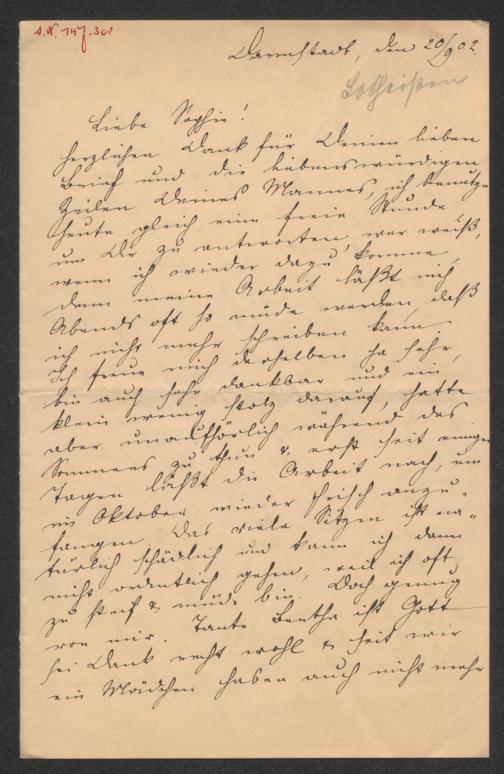 A.N. 747.301
Darmstadt, den 20/9 02.
Lotheißen
Liebe Sophie!
Herzlichen Dank für Deinen lieben
Brief und die liebenswürdigen
Zeilen Deines Mannes, ich benutze
heute gleich eine freie Stunde
um Dir zu antworten, wer weiß,
wenn ich wieder dazu komme,
denn meine Arbeit läßt mich
Abends oft so müde werden, daß
ich nicht mehr schreiben kann.
Ich freue mich derselben ja sehr,
bin auch sehr dankbar und ein
klein wenig stolz darauf, hatte
aber unaufhörlich während des
Sommers zu thun & erst seit einigen
Tagen läßt die Arbeit nach, um
im Oktober wieder frisch anzu-
fangen. Das viele Sitzen ist na-
türlich schädlich und kann ich dann
nicht ordentlich gehen, weil ich oft
zu steif & müde bin. Doch genug
von mir. Tante Bertha ist Gott
sei Dank recht wohl & seit wir
ein Mädchen haben auch nicht mehr